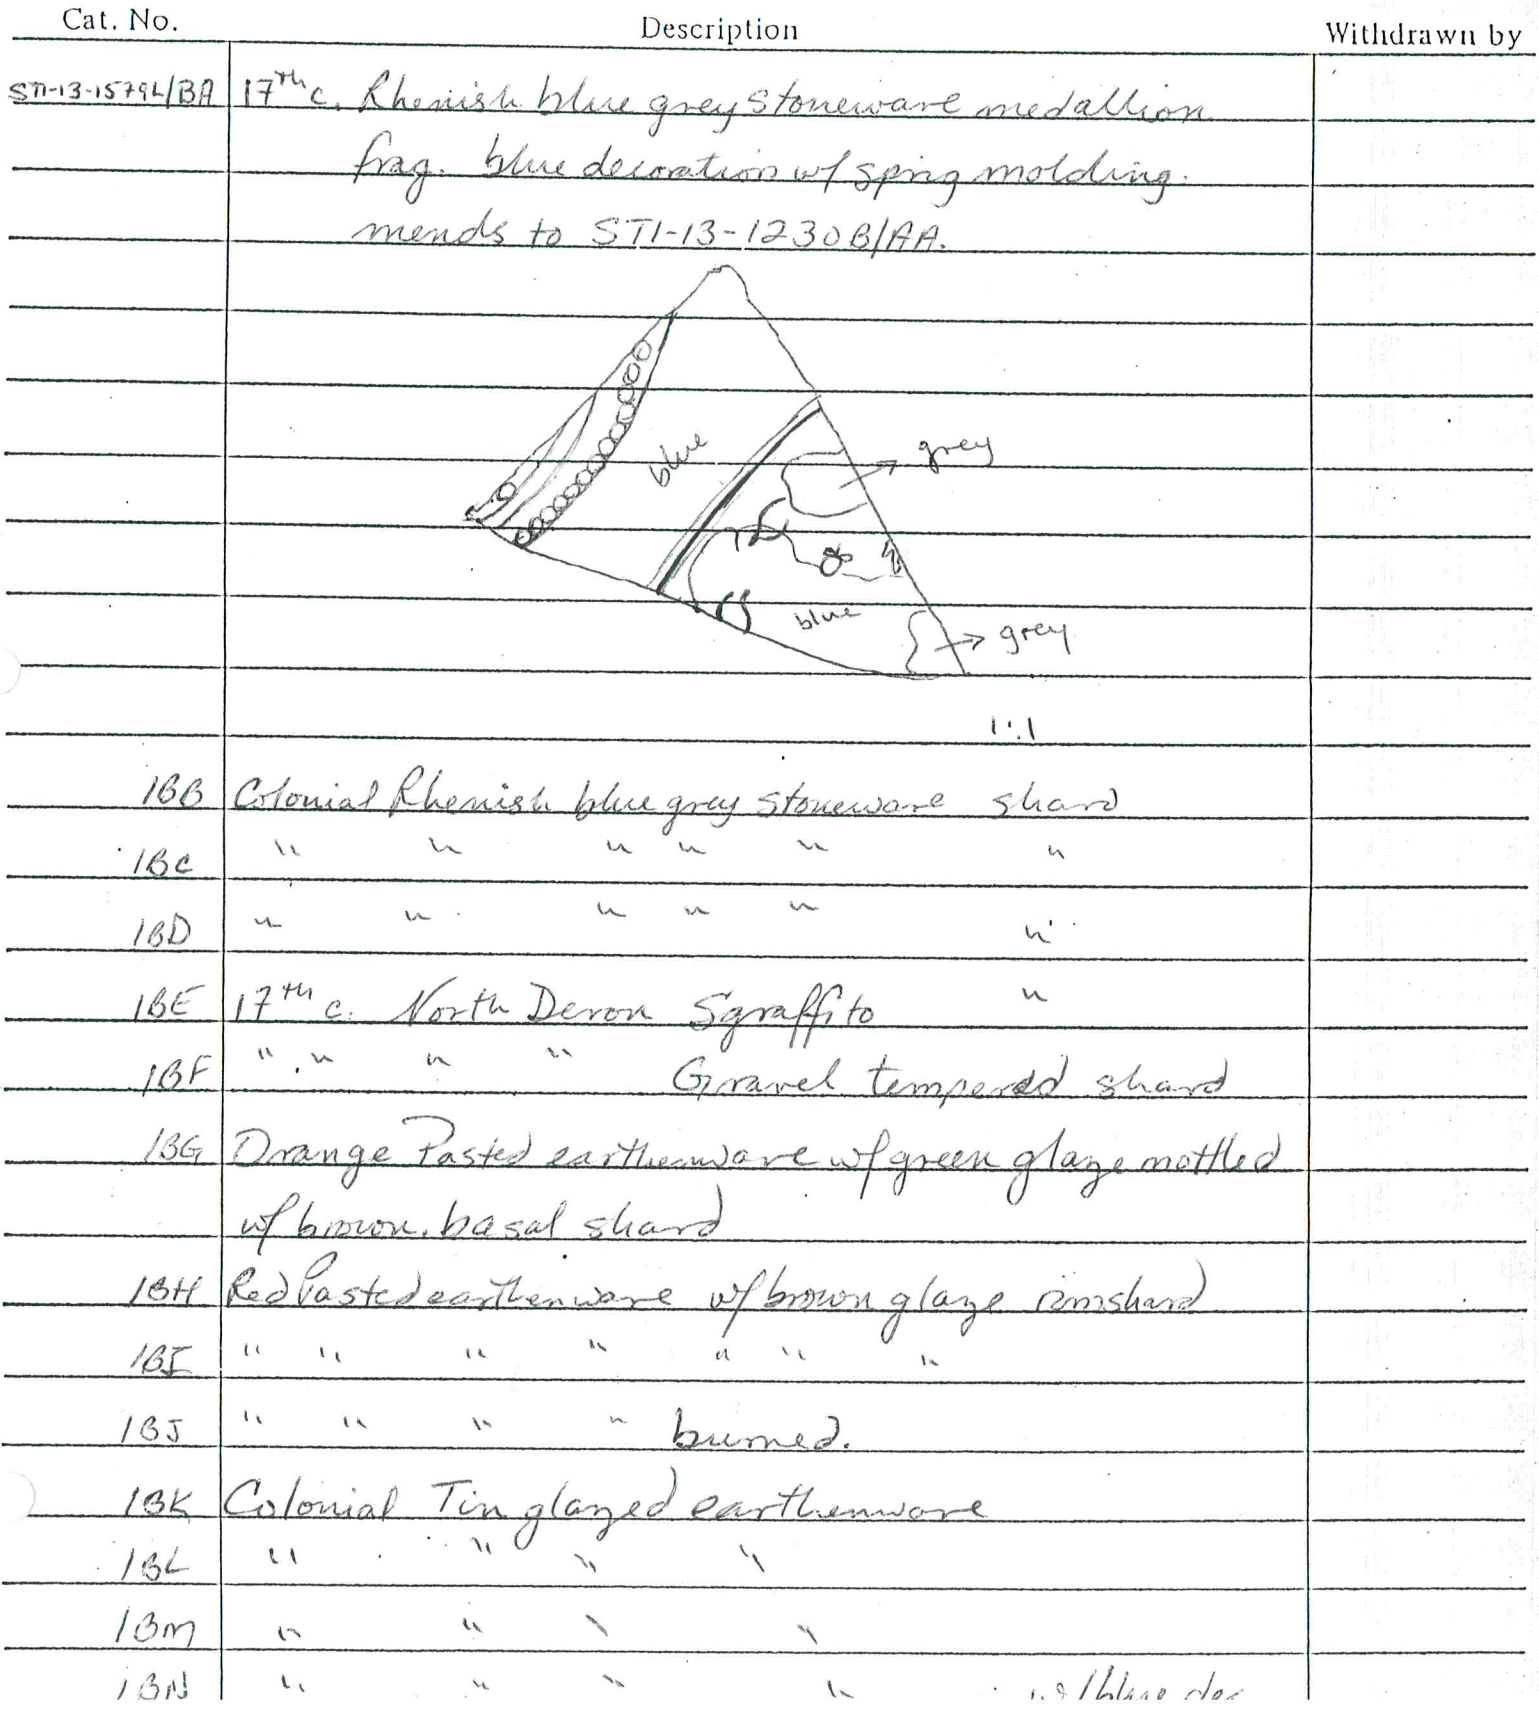 Cat. No. Description Withdrawn by
ST1-13-1579L/BA 17th c. Rhenish blue grey stoneware medallion
frag. blue decoration w/ sprig molding.
mends to ST1-13-1230B/AA.
blue
grey
blue
grey
1:1
/BB Colonial Rhenish blue grey stoneware shard
/BC " " " " " "
/BD " " " " " "
/BE 17th c. North Devon Sgraffito "
/BF " " " " Gravel tempered shard
/BG Orange Pasted earthenware w/ green glaze mottled
w/ brown. basal shard
/BH Red Pasted earthenware w/ brown glaze rimshard
/BI " " " " " " "
/BJ " " " " burned.
/BK Colonial Tin glazed earthenware
/BL " " " "
/BM " " " "
/BN " " " " w/ blue dec